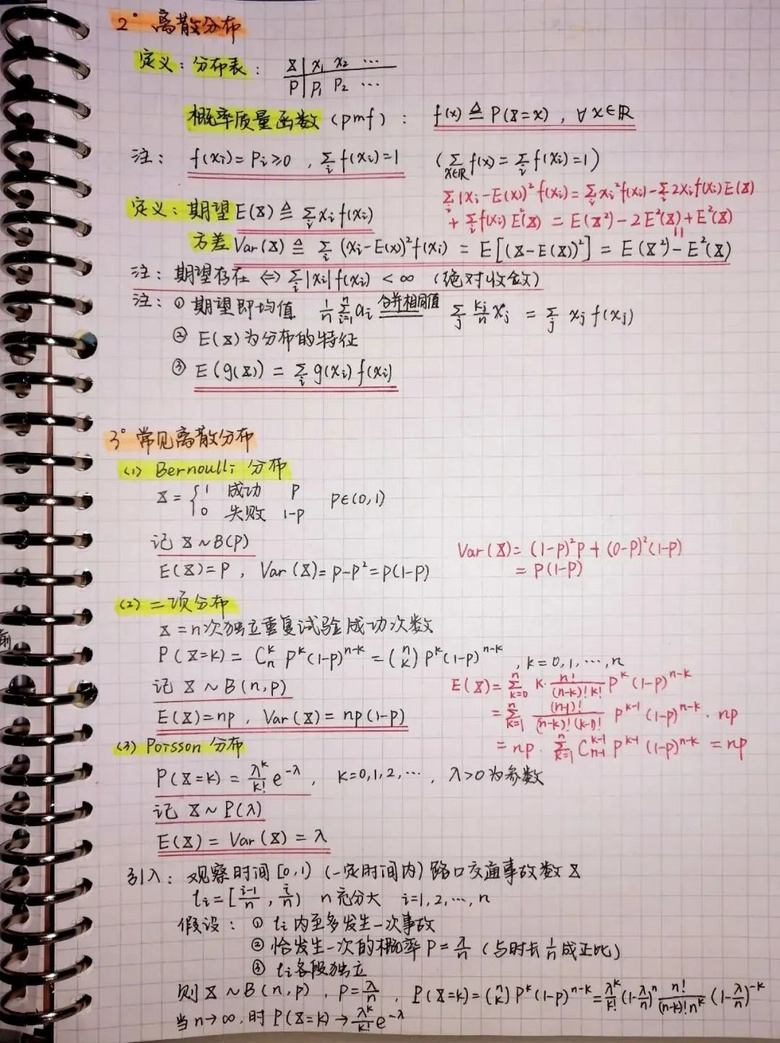 2° 离散分布
定义：分布表： X | x₁ x₂ ⋯
P | P₁ P₂ ⋯
概率质量函数（pmf）： f(x) ≜ P(X=x) , ∀x∈ℝ
注： f(xᵢ)=Pᵢ≥0 , ∑ᵢ f(xᵢ)=1 （∑_{x∈ℝ} f(x)=∑ᵢ f(xᵢ)=1）
∑ᵢ(xᵢ-E(X))² f(xᵢ)=∑ᵢ xᵢ² f(xᵢ)-∑ᵢ 2xᵢ f(xᵢ) E(X)
+ ∑ᵢ f(xᵢ) E²(X) = E(X²)-2E²(X)+E²(X)
定义：期望 E(X) ≜ ∑ᵢ xᵢ f(xᵢ)
方差 Var(X) ≜ ∑ᵢ (xᵢ-E(X))² f(xᵢ) = E[(X-E(X))²] = E(X²)-E²(X)
注：期望存在 ⇔ ∑ᵢ|xᵢ|f(xᵢ) < ∞ （绝对收敛）
注：① 期望即均值 1/n ∑_{i=1}^{n} aᵢ 合并相同值 ∑ⱼ kⱼ/n xⱼ = ∑ⱼ xⱼ f(xⱼ)
② E(X)为分布的特征
③ E(g(X)) = ∑ᵢ g(xᵢ) f(xᵢ)
3° 常见离散分布
(1) Bernoulli 分布
X = { 1 成功 P
0 失败 1-P P∈(0,1)
记 X~B(P)
E(X)=P , Var(X)=P-P²=P(1-P)
Var(X)= (1-P)²P + (0-P)²(1-P)
= P(1-P)
(2) 二项分布
X = n次独立重复试验成功次数
P(X=k) = Cₙᵏ Pᵏ(1-P)ⁿ⁻ᵏ = (n k) Pᵏ(1-P)ⁿ⁻ᵏ , k=0,1,⋯,n
记 X~B(n,p)
E(X)=np , Var(X)=np(1-p)
E(X)= ∑_{k=0}^{n} k· n!/((n-k)!k!) Pᵏ(1-P)ⁿ⁻ᵏ
= ∑_{k=1}^{n} (n-1)!/((n-k)!(k-1)!) Pᵏ⁻¹(1-P)ⁿ⁻ᵏ · np
= np · ∑_{k=1}^{n} C_{n-1}^{k-1} Pᵏ⁻¹(1-P)ⁿ⁻ᵏ = np
(3) Poisson 分布
P(X=k) = λᵏ/k! e^{-λ} , k=0,1,2,⋯ , λ>0为参数
记 X~P(λ)
E(X) = Var(X) = λ
引入：观察时间[0,1)（一定时间内）路口交通事故数X
tᵢ=[(i-1)/n , i/n) n充分大 i=1,2,⋯,n
假设：① tᵢ内至多发生一次事故
② 恰发生一次的概率 P=λ/n （与时长1/n成正比）
③ tᵢ各段独立
则 X~B(n,p) , P=λ/n , P(X=k)=(n k) Pᵏ(1-P)ⁿ⁻ᵏ = λᵏ/k! (1-λ/n)ⁿ n!/((n-k)!nᵏ) (1-λ/n)⁻ᵏ
当n→∞,时 P(X=k)→λᵏ/k! e^{-λ}